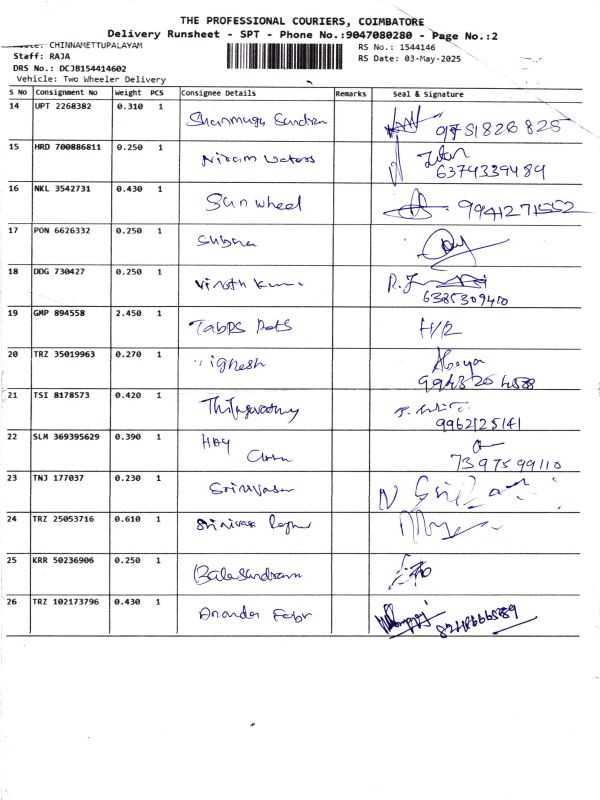 THE PROFESSIONAL COURIERS, COIMBATORE
Delivery Runsheet - SPT - Phone No.:9047080280 - Page No.:2
Route: CHINNAMETTUPALAYAM
RS No.: 1544146
Staff: RAJA
RS Date: 03-May-2025
DRS No.: DCJB154414602
Vehicle: Two Wheeler Delivery
S No Consignment No Weight PCS Consignee Details Remarks Seal & Signature
14 UPT 2268382 0.310 1 Shanmuga Sundra 9751826825
15 HRD 700886811 0.250 1 Niram Waters 6374339489
16 NKL 3542731 0.430 1 Sun wheel 9941271552
17 PON 6626332 0.250 1 Subha
18 DDG 730427 0.250 1 Vinoth Kum 6385309410
19 GMP 894558 2.450 1 H/R
20 TRZ 35019963 0.270 1 ignesh
21 TSI 8178573 0.420 1 9962125141
22 SLM 369395629 0.390 1 7397599110
23 TNJ 177037 0.230 1 Srinivasan
24 TRZ 25053716 0.610 1 Srinivasa
25 KRR 50236906 0.250 1 Balasundram
26 TRZ 102173796 0.430 1